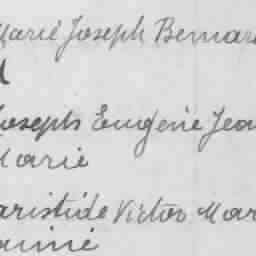 Marie Joseph Bernar
Joseph Eugène Jea
Marie
Aristide Victor Mar
Aimé